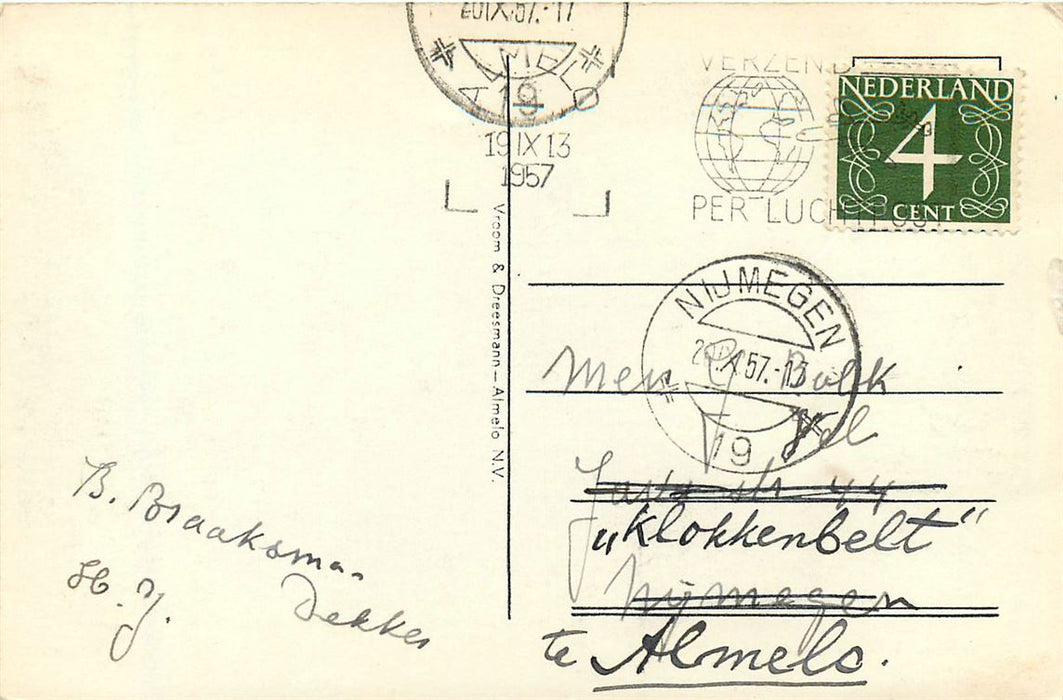 20 IX.57.-17
ALMELO
19
19 IX 13
1957
VERZEND
PER LUCHTPOST
NEDERLAND
4
CENT
Vroom & Dreesmann — Almelo N.V.
NIJMEGEN
IX 57.-13
19
Bolk
44
„Klokkenbelt”
Nijmegen
te Almelo.
B. Braaksma-
Dekker
H. J.